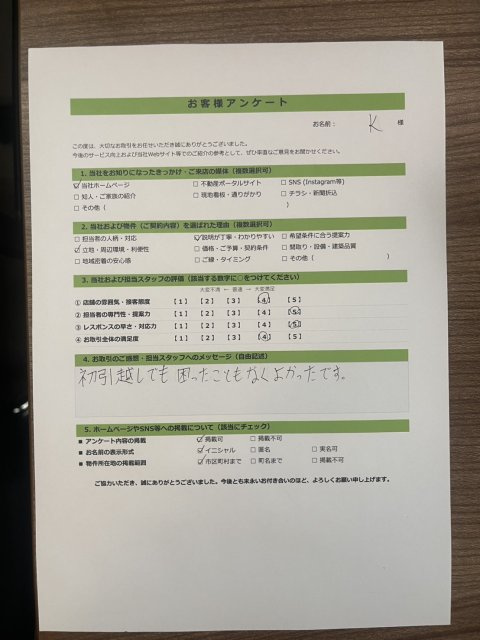 お客様アンケート
お名前： K 様
この度は、大切なお取引をお任せいただき誠にありがとうございました。
今後のサービス向上および当社Webサイト等でのご紹介の参考として、ぜひ率直なご意見をお聞かせください。
1. 当社をお知りになったきっかけ・ご来店の媒体（複数選択可）
☑ 当社ホームページ ☐ 不動産ポータルサイト ☐ SNS (Instagram等)
☐ 知人・ご家族の紹介 ☐ 現地看板・通りがかり ☐ チラシ・新聞折込
☐ その他（ ）
2. 当社および物件（ご契約内容）を選ばれた理由（複数選択可）
☐ 担当者の人柄・対応 ☑ 説明が丁寧・わかりやすい ☐ 希望条件に合う提案力
☑ 立地・周辺環境・利便性 ☐ 価格・ご予算・契約条件 ☐ 間取り・設備・建築品質
☐ 地域密着の安心感 ☐ ご縁・タイミング ☐ その他（ ）
3. 当社および担当スタッフの評価（該当する数字に○をつけてください）
大変不満 ← 普通 → 大変満足
① 店舗の雰囲気・接客態度 【1】 【2】 【3】 【4】 【5】
② 担当者の専門性・提案力 【1】 【2】 【3】 【4】 【5】
③ レスポンスの早さ・対応力 【1】 【2】 【3】 【4】 【5】
④ お取引全体の満足度 【1】 【2】 【3】 【4】 【5】
4. お取引のご感想・担当スタッフへのメッセージ（自由記述）
初引越しでも困ったこともなくよかったです。
5. ホームページやSNS等への掲載について（該当にチェック）
■ アンケート内容の掲載 ☑ 掲載可 ☐ 掲載不可
■ お名前の表示形式 ☑ イニシャル ☐ 匿名 ☐ 実名可
■ 物件所在地の掲載範囲 ☑ 市区町村まで ☐ 町名まで ☐ 掲載不可
ご協力いただき、誠にありがとうございました。今後とも末永いお付き合いのほど、よろしくお願い申し上げます。